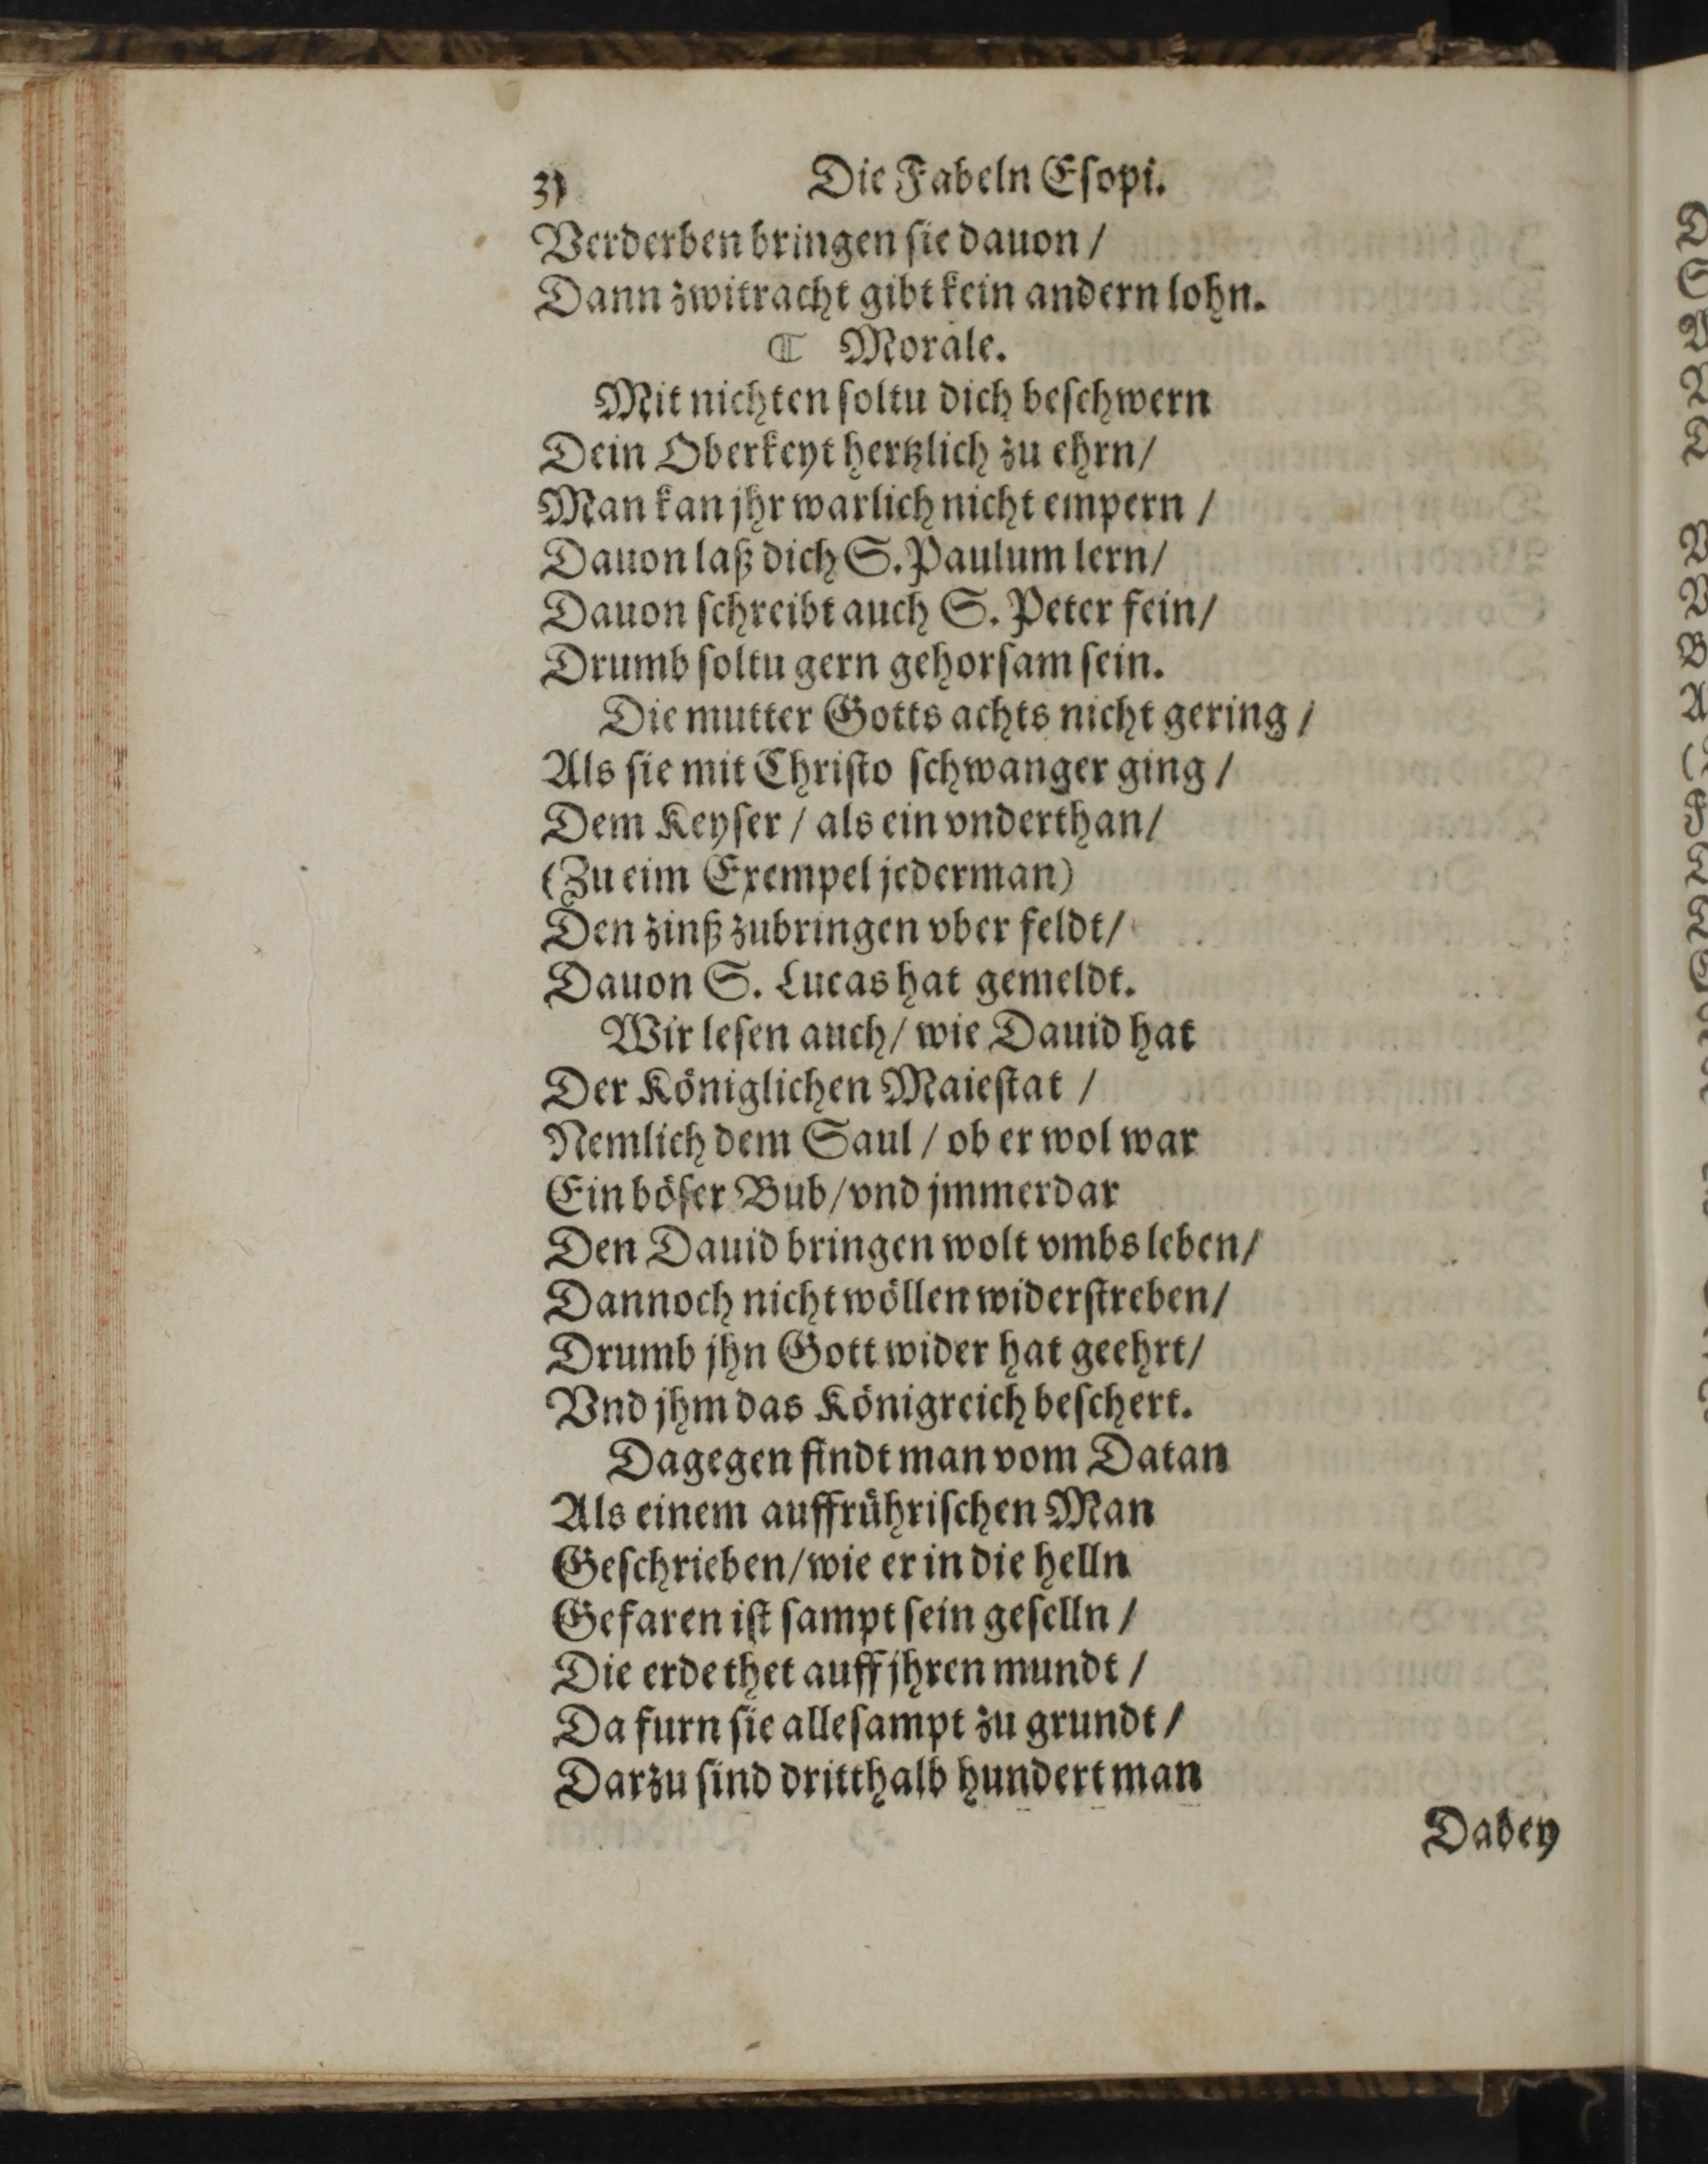 Die Fabeln Eſopi.
Verderben bringen ſie dauon /
Dann zwitracht gibt kein andern lohn.
Morale.
Mit nichten ſoltu dich beſchwern
Dein Oberkeyt hertzlich zu ehrn /
Man kan jhr warlich nicht empern /
Dauon laß dich S. Paulum lern /
Dauon ſchreibt auch S. Peter fein /
Drumb ſoltu gern gehorſam ſein.
Die mutter Gotts achts nicht gering /
Als ſie mit Chriſto ſchwanger ging /
Dem Keyſer / als ein vnderthan /
(Zu eim Exempel jederman)
Den zinß zubringen vber feldt /
Dauon S. Lucas hat gemeldt.
Wir leſen auch / wie Dauid hat
Der Königlichen Maieſtat /
Nemlich dem Saul / ob er wol war
Ein böſer Bub / vnd jmmerdar
Den Dauid bringen wolt vmbs leben /
Dannoch nicht wöllen widerſtreben /
Drumb jhn Gott wider hat geehrt /
Vnd jhm das Königreich beſchert.
Dagegen findt man vom Datan
Als einem auffrühriſchen Man
Geſchrieben / wie er in die helln
Gefaren iſt ſampt ſein geſelln /
Die erde thet auff jhren mundt /
Da furn ſie alleſampt zu grundt /
Darzu ſind dritthalb hundert man
Dabey